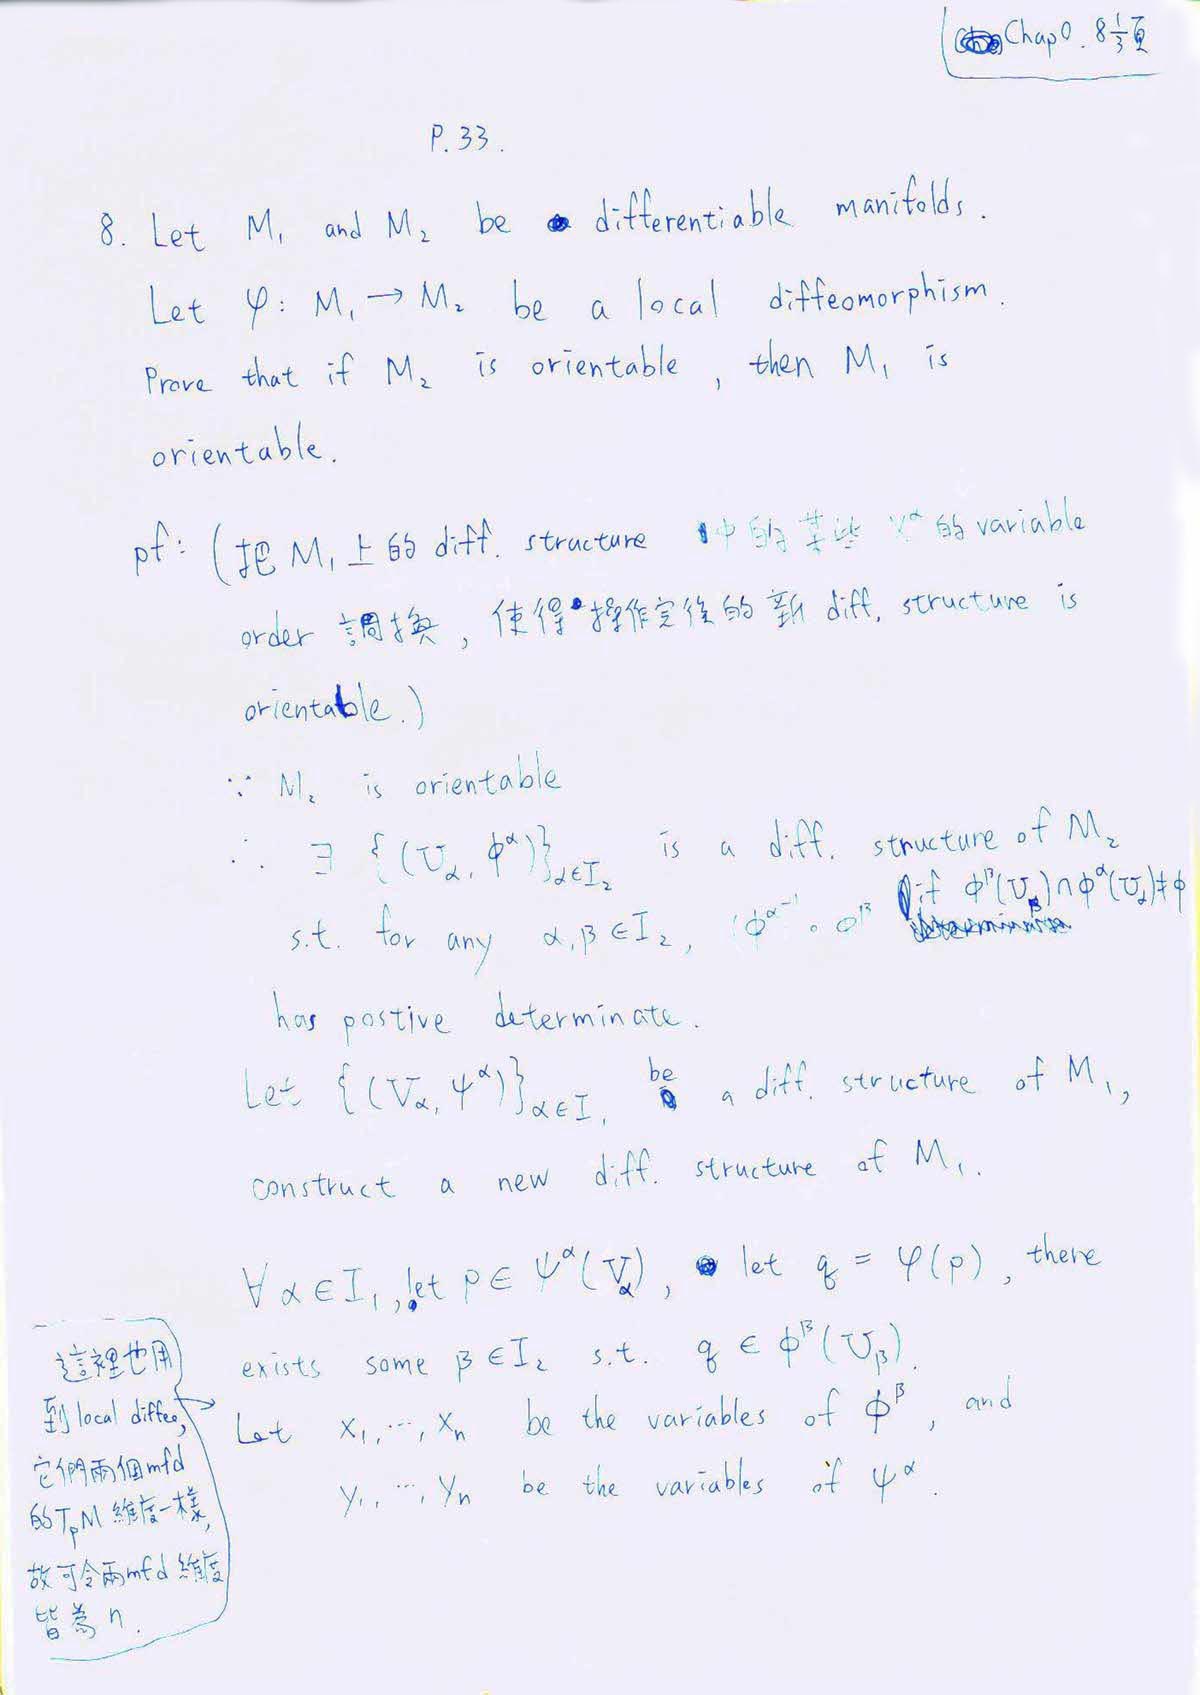 Chap0. 8 1/3 頁
P.33.
8. Let M₁ and M₂ be differentiable manifolds.
Let φ: M₁ → M₂ be a local diffeomorphism.
Prove that if M₂ is orientable, then M₁ is
orientable.
pf: (把 M₁ 上的 diff. structure 中的某些 X^α 的 variable
order 調換, 使得操作完後的新 diff. structure is
orientable.)
∵ M₂ is orientable
∴ ∃ {(U_α, ϕ^α)}_{α∈I₂} is a diff. structure of M₂
s.t. for any α, β ∈ I₂, ϕ^{α⁻¹} ∘ ϕ^β if ϕ^β(U_β) ∩ ϕ^α(U_α) ≠ ϕ
has postive determinate.
Let {(V_α, ψ^α)}_{α∈I₁} be a diff. structure of M₁,
construct a new diff. structure of M₁.
∀ α ∈ I₁, let p ∈ ψ^α(V_α), let q = φ(p), there
exists some β ∈ I₂ s.t. q ∈ ϕ^β(U_β).
Let x₁, ⋯, xₙ be the variables of ϕ^β, and
y₁, ⋯, yₙ be the variables of ψ^α.
這裡也用
到 local diffeo,
它們兩個 mfd
的 TₚM 維度一樣,
故可令兩 mfd 維度
皆為 n.